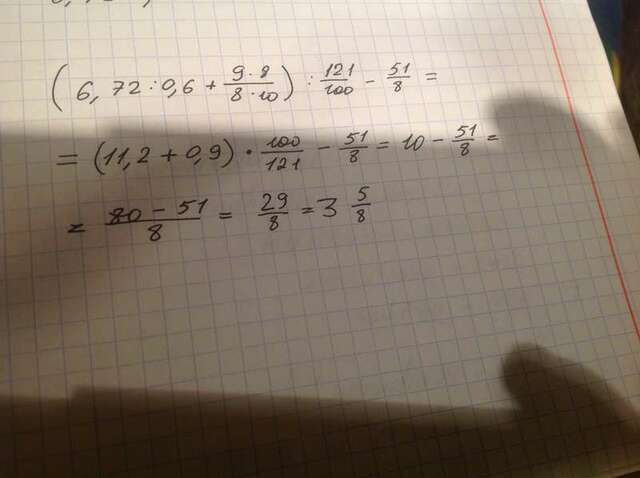 (6,72:0,6 + 9·8/8·10) : 121/100 - 51/8 =
= (11,2 + 0,9) · 100/121 - 51/8 = 10 - 51/8 =
= 80 - 51/8 = 29/8 = 3 5/8